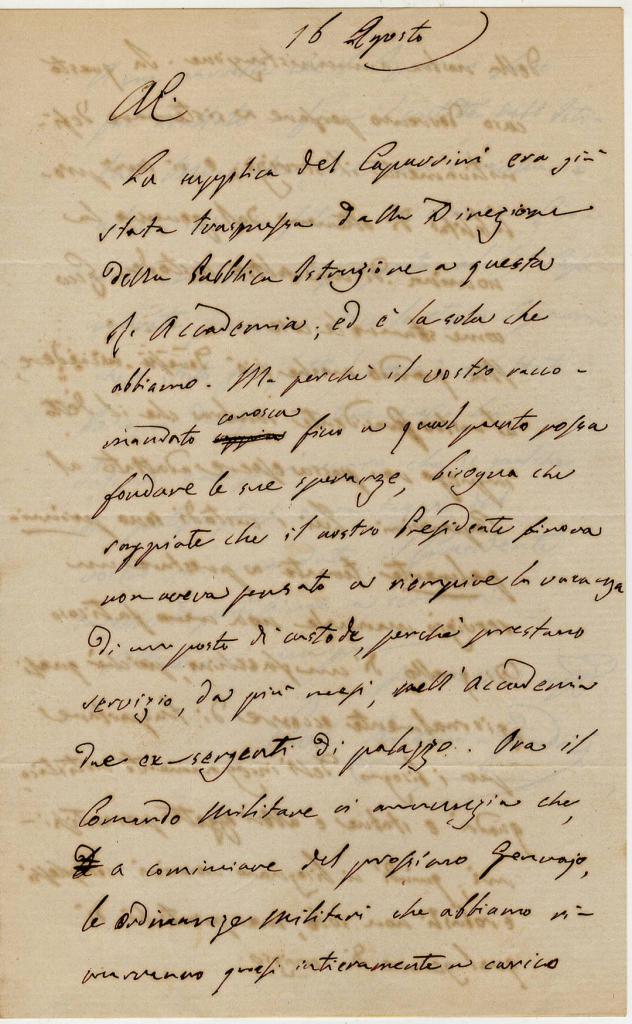 16 Agosto
AC.
La supplica del Capuccini era già
stata trasmessa dalla Direzione
della Pubblica Istruzione a questa
R. Accademia; ed è la sola che
abbiamo. Ma perchè il vostro racco-
mandato conosca fino a qual punto possa
fondare le sue speranze, bisogna che
sappiate che il nostro Presidente finora
non aveva pensato a riempire la vacanza
di un posto di custode, perchè prestano
servizio, da più mesi, nell'Accademia
due ex-sergenti di palazzo. Ora il
Comando Militare ci annunzia che,
a cominciare del prossimo Gennajo,
le ordinanze militari che abbiamo ri-
marranno quasi intieramente a carico